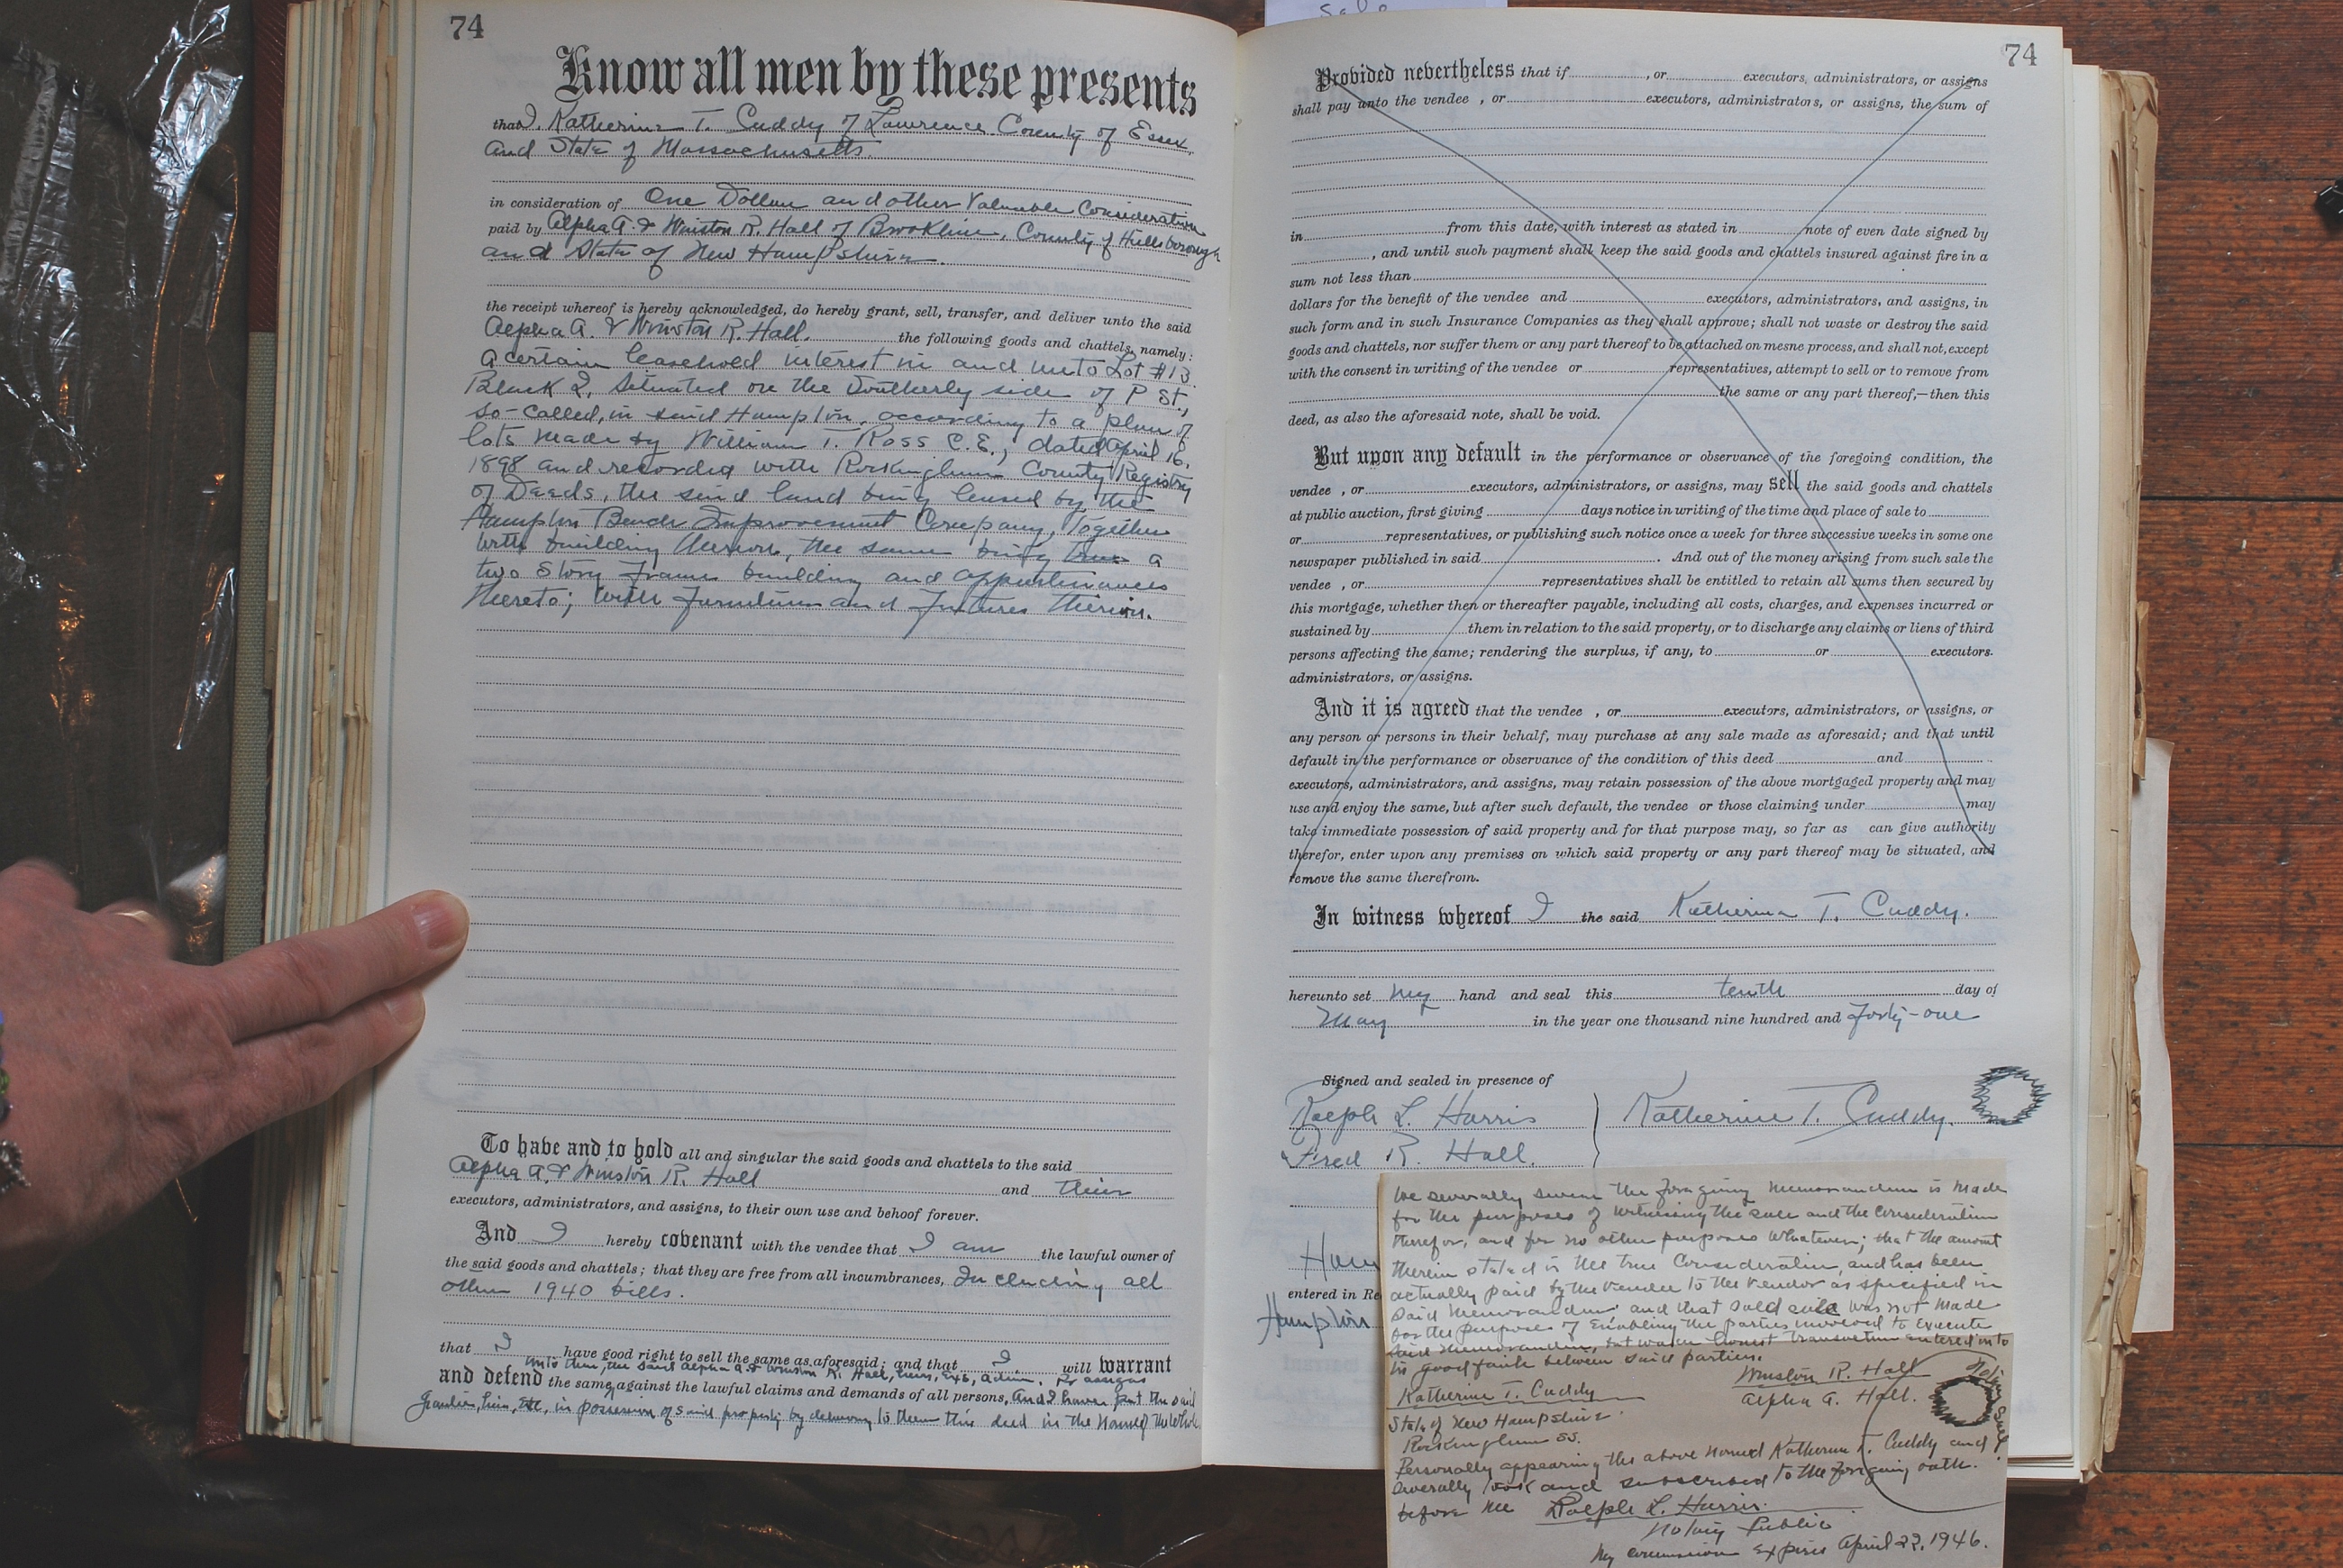 Sale
74
Know all men by these presents
that I, Katherine T. Cuddy of Lawrence County of Essex,
and State of Massachusetts.
in consideration of One Dollar and other Valuable Consideration
paid by Alpha A. & Winston R. Hall of Brookline, County of Hillsborough
and State of New Hampshire.
the receipt whereof is hereby acknowledged, do hereby grant, sell, transfer, and deliver unto the said
Alpha A. & Winston R. Hall. the following goods and chattels, namely:
A certain leasehold interest in and unto Lot #13
Block 2, situated on the Southerly side of P St.,
so-called, in said Hampton, according to a plan of
lots made by William T. Ross C.E., dated April 16,
1898 and recorded with Rockingham County Registry
of Deeds, the said land being leased by the
Hampton Beach Improvement Company, Together
with building thereon, the same being a
two story frame building and appurtenances
thereto; with furniture and fixtures therein.
To have and to hold all and singular the said goods and chattels to the said
Alpha A. & Winston R. Hall and their
executors, administrators, and assigns, to their own use and behoof forever.
And I hereby covenant with the vendee that I am the lawful owner of
the said goods and chattels; that they are free from all incumbrances, Including all
other 1940 bills.
that I have good right to sell the same as aforesaid; and that I will warrant
unto them, the said Alpha A. & Winston R. Hall, heirs, Exs, admin. Or assigns
and defend the same against the lawful claims and demands of all persons, And I have put the said
Grantees, heirs, etc, in possession of said property by delivering to them this deed in the name of the whole.
74
Provided nevertheless that if , or executors, administrators, or assigns
shall pay unto the vendee , or executors, administrators, or assigns, the sum of
in from this date, with interest as stated in note of even date signed by
, and until such payment shall keep the said goods and chattels insured against fire in a
sum not less than
dollars for the benefit of the vendee and executors, administrators, and assigns, in
such form and in such Insurance Companies as they shall approve; shall not waste or destroy the said
goods and chattels, nor suffer them or any part thereof to be attached on mesne process, and shall not, except
with the consent in writing of the vendee or representatives, attempt to sell or to remove from
the same or any part thereof,—then this
deed, as also the aforesaid note, shall be void.
But upon any default in the performance or observance of the foregoing condition, the
vendee , or executors, administrators, or assigns, may sell the said goods and chattels
at public auction, first giving days notice in writing of the time and place of sale to
or representatives, or publishing such notice once a week for three successive weeks in some one
newspaper published in said . And out of the money arising from such sale the
vendee , or representatives shall be entitled to retain all sums then secured by
this mortgage, whether then or thereafter payable, including all costs, charges, and expenses incurred or
sustained by them in relation to the said property, or to discharge any claims or liens of third
persons affecting the same; rendering the surplus, if any, to or executors.
administrators, or assigns.
And it is agreed that the vendee , or executors, administrators, or assigns, or
any person or persons in their behalf, may purchase at any sale made as aforesaid; and that until
default in the performance or observance of the condition of this deed and
executors, administrators, and assigns, may retain possession of the above mortgaged property and may
use and enjoy the same, but after such default, the vendee or those claiming under may
take immediate possession of said property and for that purpose may, so far as can give authority
therefor, enter upon any premises on which said property or any part thereof may be situated, and
remove the same therefrom.
In witness whereof I the said Katherine T. Cuddy.
hereunto set my hand and seal this tenth day of
May in the year one thousand nine hundred and forty-one
Signed and sealed in presence of
Ralph L. Harris Katherine T. Cuddy.
Fred R. Hall.
Ham
entered in Re
Hampton
We severally swear the foregoing memorandum is made
for the purposes of witnessing the sale and the consideration
therefor, and for no other purposes whatever; that the amount
therein stated is the true consideration, and has been
actually paid by the Vendee to the Vendor as specified in
said Memorandum and that said sale was not made
for the purpose of enabling the parties involved to execute
said Memorandum, but was an honest transaction entered into
in good faith between said parties.
Winston R. Hall
Katherine T. Cuddy Alpha A. Hall.
Notary Seal
State of New Hampshire
Rockingham SS.
Personally appearing the above named Katherine T. Cuddy and
severally took and subscribed to the foregoing oath.
before me Ralph L. Harris.
Notary Public
My commission expires April 22, 1946.